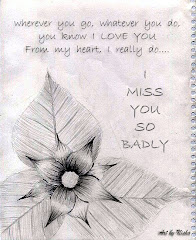 wherever you go, whatever you do,
you know I LOVE YOU
From my heart, I really do....
I
MISS
YOU
SO
BADLY
Art by Nisha